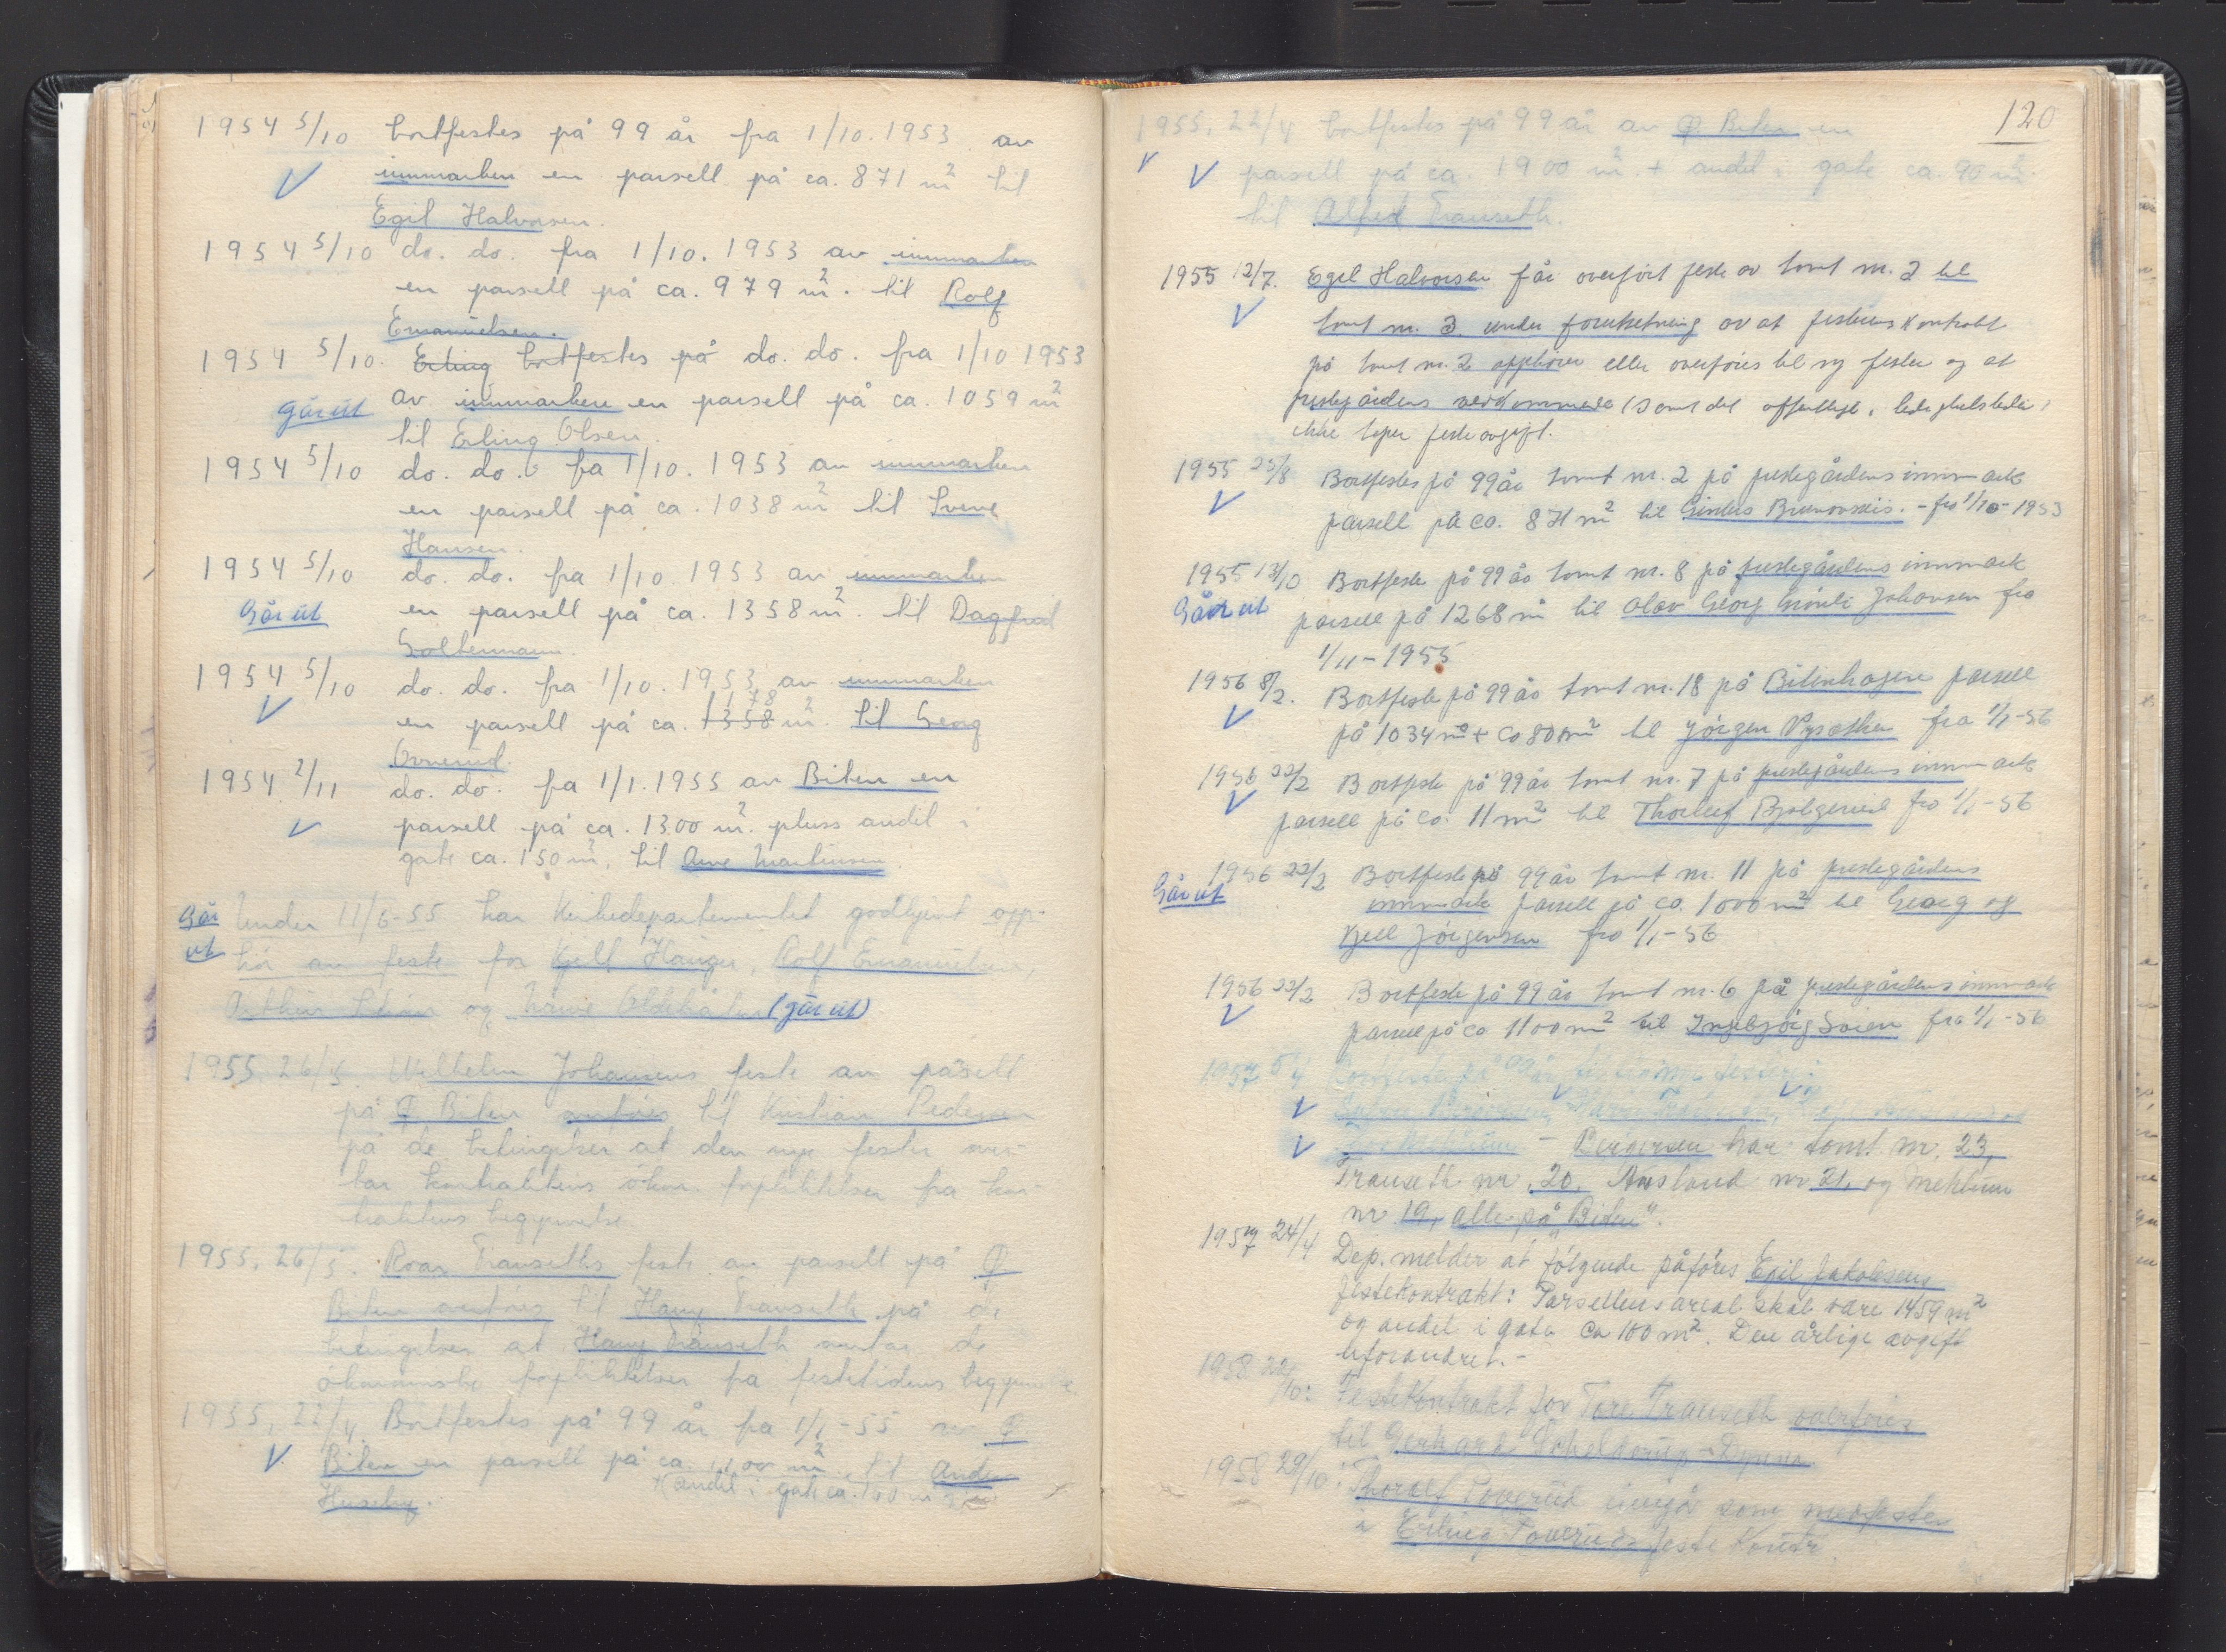 1954 5/10 bortfestes på 99 år fra 1/10. 1953 av
innmarken en parsell på ca. 871 m² til
Egil Halvorsen.
1954 5/10 do. do. fra 1/10. 1953 av innmarken
en parsell på ca. 979 m². til Rolf
Emanuelsen.
1954 5/10. Erling bortfestes på do. do. fra 1/10 1953
Går ut av innmarken en parsell på ca. 1059 m²
til Erling Olsen.
1954 5/10 do. do. fra 1/10. 1953 av innmarken
en parsell på ca. 1038 m² til Svene
Hansen.
1954 5/10 do. do. fra 1/10. 1953 av innmarken
Går ut en parsell på ca. 1358 m². til Dagfred
Soltermann.
1954 5/10 do. do. fra 1/10. 1953 av innmarken
1178
en parsell på ca. 1358 m². til Georg
1954 2/11 do. do. fra 1/1. 1955 av Biten en
parsell på ca. 1300 m². pluss andel i
gate ca. 150 m², til Arne Martinsen.
Går ut Under 11/6-55 har Kirkedepartementet godkjent opp-
hør av feste for Kjell Hauger, Rolf Emanuelsen,
og (går ut)
1955, 26/5. Wilhelm Johansens feste av parsell
på Biten overføres til Kristian Pedersen
på de betingelser at den nye fester over-
tar kontraktens økon. forpliktelser fra kon-
traktens begynnelse.
1955, 26/5. Roar Transeths feste av parsell på
Biten overføres til Harry Transeth på de
betingelser at Harry Transeth overtar de
økonomiske forpliktelser fra festetidens begynnelse.
1955, 22/4. Bortfestes på 99 år fra 1/1-55 av
Biten en parsell på ca. m² til
+ andel i gate ca. 100 m
Huseby.
120
1955, 22/4 bortfestes på 99 år av Biten en
parsell på ca. 1900 m² + andel i gate ca. 90 m²
til Alfred Transeth.
1955 12/7. Egil Halvorsen får overført feste av tomt nr. 2 til
tomt nr. 3 under forutsetning av at festerens kontrakt
på tomt nr. 2 opphører eller overføres til ny fester og at
prestegårdens vedkommende (samt det offentlige,
ikke taper festeavgift.
1955 25/8 Bortfestes på 99 år tomt nr. 2 på prestegårdens innmark
parsell på ca. 871 m² til Gintis Brunovskis. - fra 1/10-1953
1955 13/10 Bortfeste på 99 år tomt nr. 8 på prestegårdens innmark
Går ut parsell på 1268 m² til Olav Georg Grønli Johansen fra
1/11-1955
1956 8/2. Bortfeste på 99 år tomt nr. 18 på Bitenhagen parsell
på 1034 m² + ca 80 m² til Jørgen fra 1/1-56
1956 22/2 Bortfeste på 99 år tomt nr. 7 på prestegårdens innmark
parsell på ca. 11 m² til Thorleif fra 1/1-56
1956 22/2 Bortfeste på 99 år tomt nr. 11 på prestegårdens
Går ut innmark parsell på ca. 1000 m² til Georg og
Kjell Jørgensen fra 1/1-56
1956 22/2 Bortfeste på 99 år tomt nr. 6 på prestegårdens innmark
parsell på ca 1100 m² til Ingebjørg Soien fra 1/1-56
1957 5/4 Bortfeste på 99 år til
- Birgersen har tomt nr. 23,
Transeth nr. 20, Ausland nr 21, og Mehlum
nr 19, alle på "Biten".
1957 24/4 Dep. melder at følgende påføres Egil Jakobsens
festekontrakt: Parsellens areal skal være 1459 m²
og andel i gate ca 100 m². Den årlige avgift
uforandret. -
1958 22/10: Festekontrakt for Tore Transeth overføres
til Gerhard
1958 29/10: Thoralf Toverud inngår som medfester
i Erling Toveruds feste kontr.